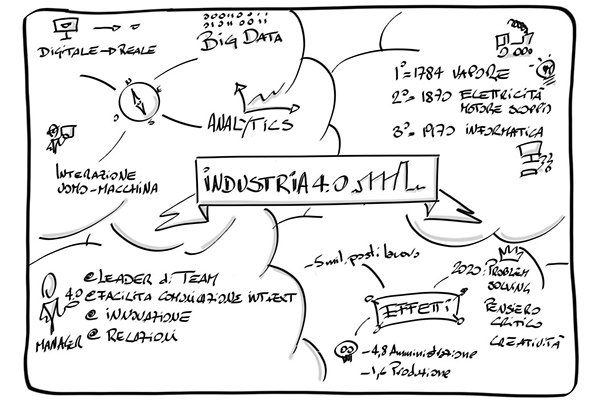 DIGITALE → REALE
BIG DATA
ANALYTICS
INTERAZIONE
UOMO-MACCHINA
1°= 1784 VAPORE
2°= 1870 ELETTRICITÀ
MOTORE SCOPPIO
3°= 1970 INFORMATICA
INDUSTRIA 4.0
4.0
MANAGER
@ LEADER di TEAM
@ FACILITA COMUNICAZIONE INT. EXT
@ INNOVAZIONE
@ RELAZIONI
-5 mil. posti lavoro
EFFETTI
-4,8 Amministrazione
-1,6 Produzione
2020: PROBLEM
SOLVING
PENSIERO
CRITICO
CREATIVITÀ